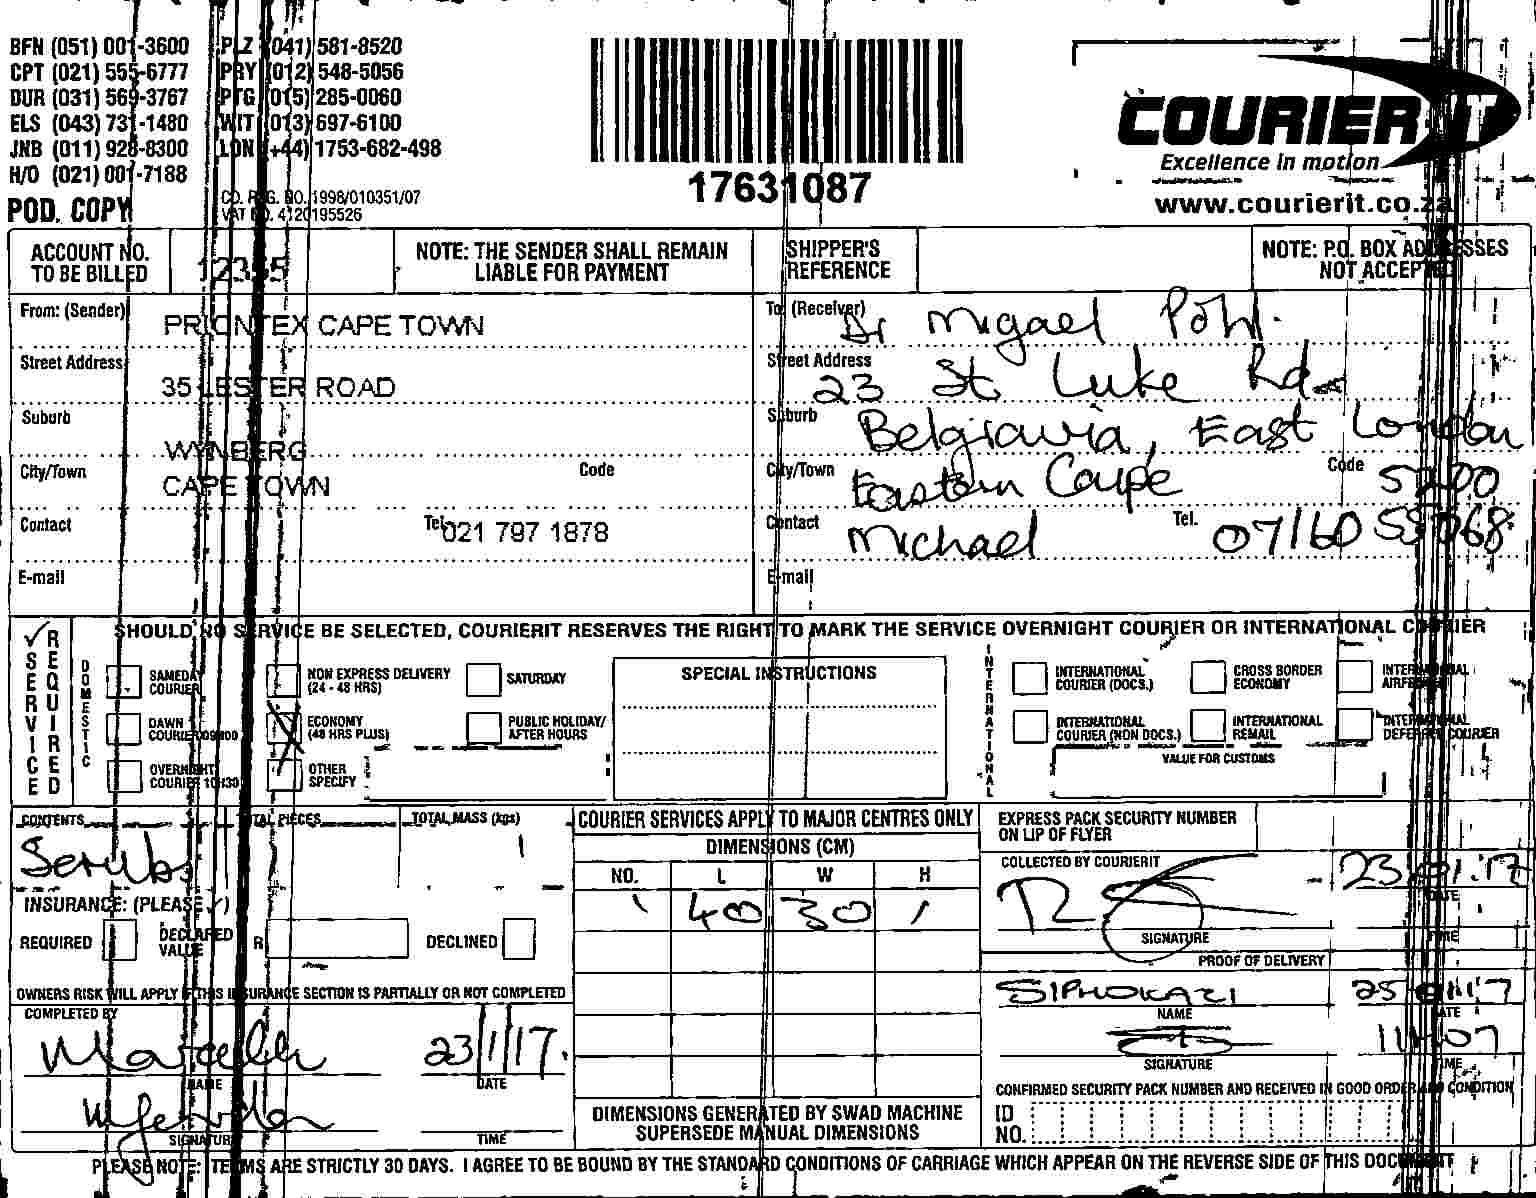 BFN (051) 001-3600 PLZ (041) 581-8520
CPT (021) 555-6777 PRY (012) 548-5056
DUR (031) 569-3767 PTG (015) 285-0060
ELS (043) 731-1480 WIT (013) 697-6100
JNB (011) 928-8300 LDN (+44) 1753-682-498
H/O (021) 001-7188
POD. COPY
CO. REG. NO. 1998/010351/07
VAT NO. 4120195526
17631087
COURIERIT
Excellence in motion
www.courierit.co.za
ACCOUNT NO. TO BE BILLED 12355
NOTE: THE SENDER SHALL REMAIN LIABLE FOR PAYMENT
SHIPPER'S REFERENCE
NOTE: P.O. BOX ADDRESSES NOT ACCEPTED
From: (Sender) PRIONTEX CAPE TOWN
Street Address 35 LESTER ROAD
Suburb WYNBERG
City/Town CAPE TOWN Code
Contact Tel. 021 797 1878
E-mail
To (Receiver) Dr Migael Pohl.
Street Address 23 St Luke Rd.
Suburb Belgravia, East London
City/Town Eastern Cape Code 5200
Contact Michael Tel. 07160 55068
E-mail
SERVICE REQUIRED
SHOULD NO SERVICE BE SELECTED, COURIERIT RESERVES THE RIGHT TO MARK THE SERVICE OVERNIGHT COURIER OR INTERNATIONAL COURIER
DOMESTIC
SAMEDAY COURIER
NON EXPRESS DELIVERY (24 - 48 HRS)
SATURDAY
DAWN COURIER 09H00
ECONOMY (48 HRS PLUS)
PUBLIC HOLIDAY/ AFTER HOURS
OVERNIGHT COURIER 10H30
OTHER SPECIFY
SPECIAL INSTRUCTIONS
INTERNATIONAL
INTERNATIONAL COURIER (DOCS.)
CROSS BORDER ECONOMY
INTERNATIONAL AIRFREIGHT
INTERNATIONAL COURIER (NON DOCS.)
INTERNATIONAL REMAIL
INTERNATIONAL DEFERRED COURIER
VALUE FOR CUSTOMS
CONTENTS Scrubs
TOTAL PIECES
TOTAL MASS (kgs) 1
INSURANCE: (PLEASE ✓)
REQUIRED
DECLARED VALUE R
DECLINED
OWNERS RISK WILL APPLY IF THIS INSURANCE SECTION IS PARTIALLY OR NOT COMPLETED
COMPLETED BY
NAME
23/1/17.
DATE
SIGNATURE
TIME
COURIER SERVICES APPLY TO MAJOR CENTRES ONLY
DIMENSIONS (CM)
NO. L W H
1 40 30 1
DIMENSIONS GENERATED BY SWAD MACHINE SUPERSEDE MANUAL DIMENSIONS
EXPRESS PACK SECURITY NUMBER ON LIP OF FLYER
COLLECTED BY COURIERIT
23.01.17
DATE
SIGNATURE
TIME
PROOF OF DELIVERY
SIPHOKAZI 25-01-17
NAME DATE
11H07
SIGNATURE TIME
CONFIRMED SECURITY PACK NUMBER AND RECEIVED IN GOOD ORDER AND CONDITION
ID NO.
PLEASE NOTE: TERMS ARE STRICTLY 30 DAYS. I AGREE TO BE BOUND BY THE STANDARD CONDITIONS OF CARRIAGE WHICH APPEAR ON THE REVERSE SIDE OF THIS DOCUMENT